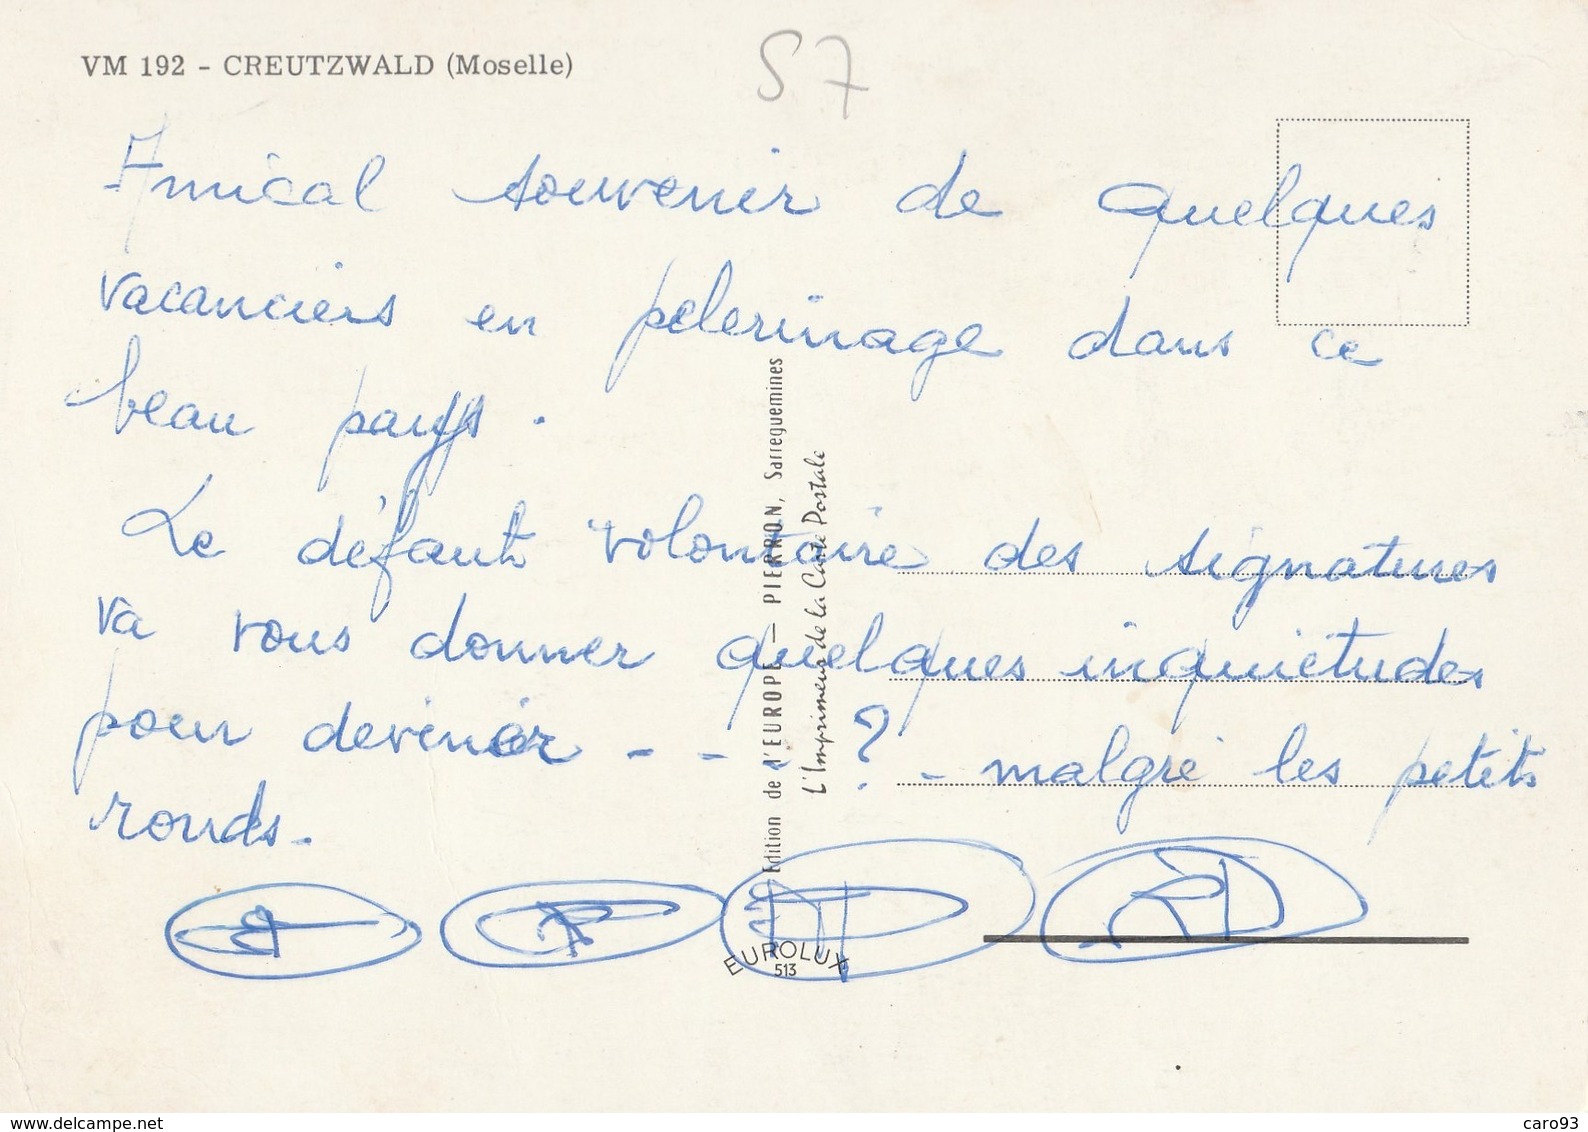 VM 192 - CREUTZWALD (Moselle)
57
Amical souvenir de quelques
vacanciers en pelerinage dans ce
beau pays.
Le défaut volontaire des signatures
va vous donner quelques inquiétudes
pour devenir - - - ? - malgré les petits
ronds.
Edition de l'EUROPE — PIERRON, Sarreguemines
L'Imprimeur de la Carte Postale
EUROLUX
513
www.delcampe.net
caro93